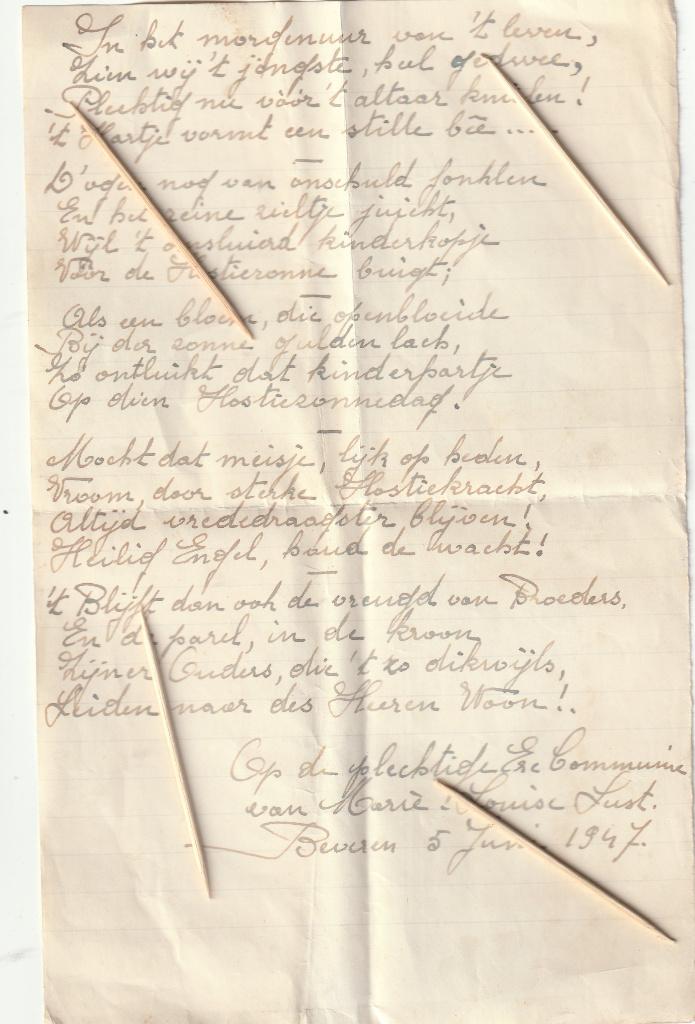 In het morgenuur van 't leven,
Zien wij 't jongste, heel gedwee,
Plechtig nu vóór 't altaar knielen!
't Hartje vormt een stille bêe ....
D'ogen nog van onschuld fonklen
En het reine zieltje juicht,
Wijl 't omsluierd kinderkopje
Vóór de Hostiezonne buigt;
Als een bloem, die openbloeide
Bij der zonne gulden lach,
Zó ontluikt dat kinderhartje
Op dien Hostiezonnedag.
Mocht dat meisje, lijk op heden,
Vroom, door sterke Hostiekracht,
Altijd vrededraagster blijven!
Heilig Engel, houd de wacht!
't Blijft dan ook de vreugd van Broeders,
En de parel, in de kroon
Zijner Ouders, die 't zo dikwijls,
Leiden naar des Heeren Woon!.
Op de plechtige Ere Communie
van Marie : Louise Lust.
Beveren 5 Juni 1947.